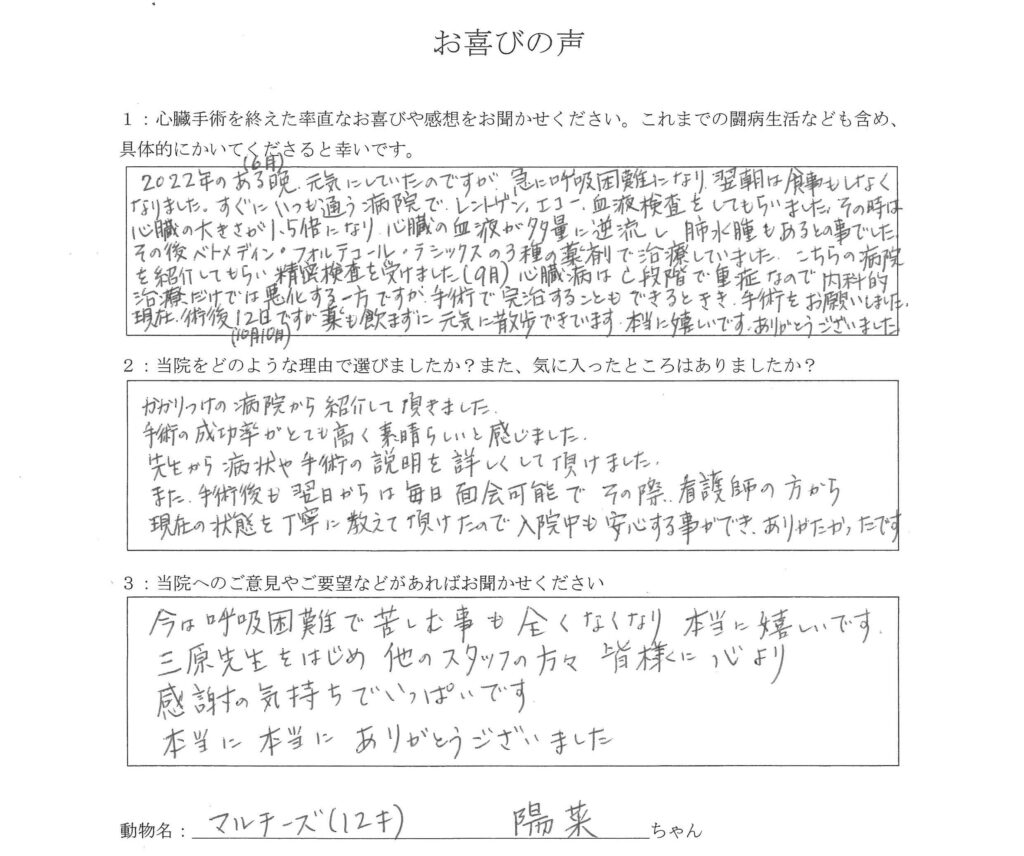 お喜びの声
1：心臓手術を終えた率直なお喜びや感想をお聞かせください。これまでの闘病生活なども含め、
具体的にかいてくださると幸いです。
(6月)
2022年のある晩、元気にしていたのですが、急に呼吸困難になり、翌朝は食事もしなく
なりました。すぐにいつも通う病院で、レントゲン、エコー、血液検査をしてもらいました。その時は
心臓の大きさが1.5倍になり、心臓の血液が多量に逆流し 肺水腫もあるとの事でした。
その後ベトメディン・フォルテコール・ラシックスの3種の薬剤で治療していました。こちらの病院
を紹介してもらい精密検査を受けました(9月) 心臓病はC段階で重症なので内科的
治療だけでは悪化する一方ですが、手術で完治することもできるときき、手術をお願いしました。
現在、術後12日ですが薬も飲まずに元気に散歩できています。本当に嬉しいです。ありがとうございました
(10月10日)
2：当院をどのような理由で選びましたか？また、気に入ったところはありましたか？
かかりつけの病院から紹介して頂きました。
手術の成功率がとても高く素晴らしいと感じました。
先生から病状や手術の説明を詳しくして頂けました。
また、手術後も翌日からは毎日面会可能で その際、看護師の方から
現在の状態を丁寧に教えて頂けたので入院中も安心する事ができ、ありがたかったです
3：当院へのご意見やご要望などがあればお聞かせください
今は呼吸困難で苦しむ事も全くなくなり 本当に嬉しいです。
三原先生をはじめ 他のスタッフの方々 皆様に心より
感謝の気持ちでいっぱいです。
本当に本当に ありがとうございました
動物名：マルチーズ(12才) 陽菜 ちゃん